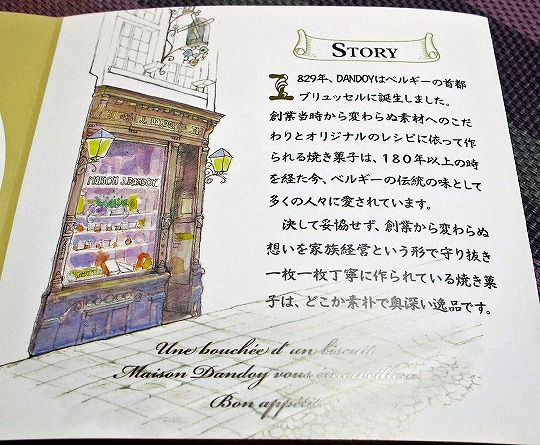 STORY
1829年、DANDOYはベルギーの首都
ブリュッセルに誕生しました。
創業当時から変わらぬ素材へのこだ
わりとオリジナルのレシピに依って作
られる焼き菓子は、180年以上の時
を経た今、ベルギーの伝統の味として
多くの人々に愛されています。
決して妥協せず、創業から変わらぬ
想いを家族経営という形で守り抜き
一枚一枚丁寧に作られている焼き菓
子は、どこか素朴で奥深い逸品です。
MAISON J. DANDOY
Une bouchée d'un biscuit
Maison Dandoy vous émerveillera
Bon appétit